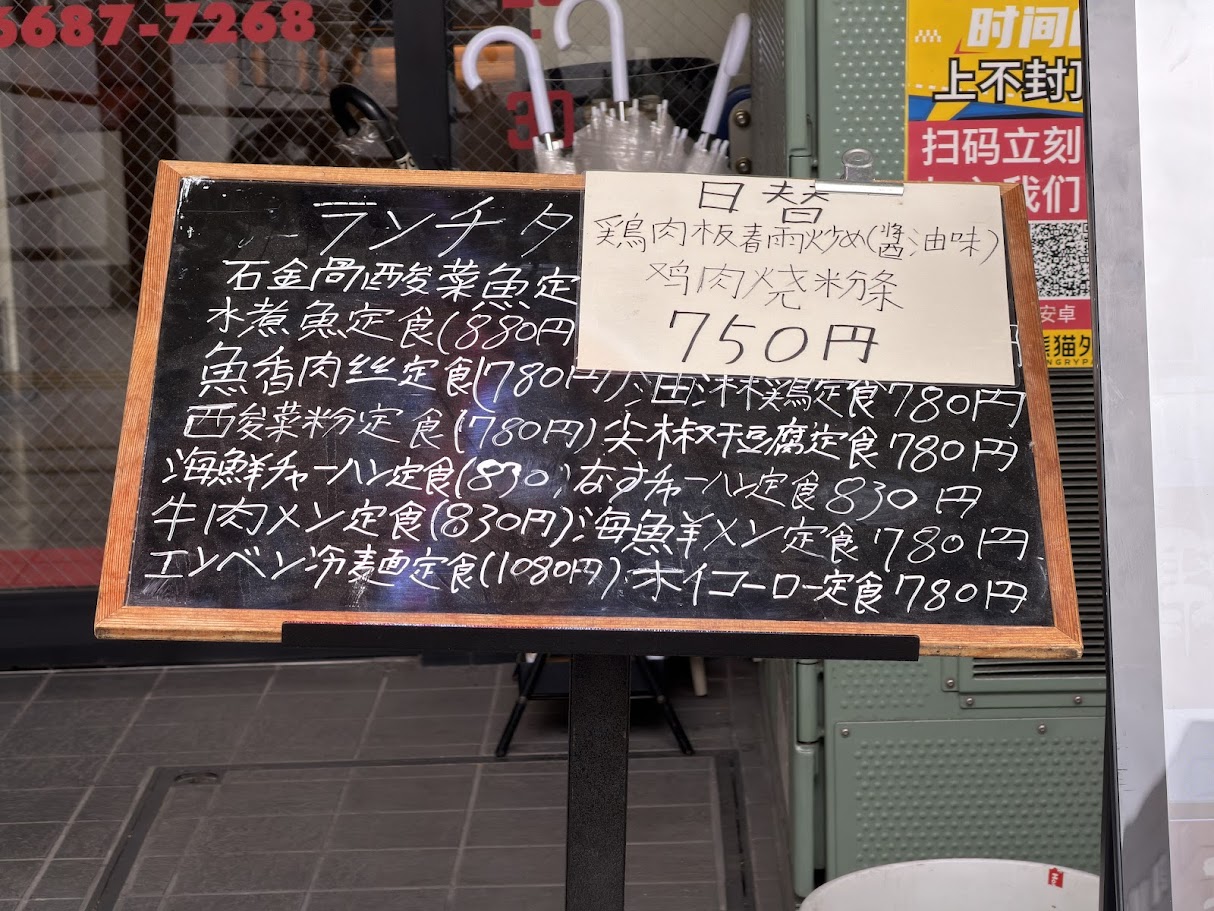 6687-7268
30
时间
上不封顶
扫码立刻
我们
安卓
熊猫外
NGRYP
日替
鶏肉板春雨炒め(醤油味)
鸡肉烧粉条
750円
ランチタ
石金高酸菜魚定
水煮魚定食(880円
魚香肉丝定食(780円) 油淋鶏定食780円
酸菜粉定食(780円) 尖椒干豆腐定食780円
海鮮チャーハン定食(830) なすチャーハン定食830円
牛肉メン定食(830円) 海鮮メン定食780円
エンベン冷麺定食(1080円) ホイコーロー定食780円